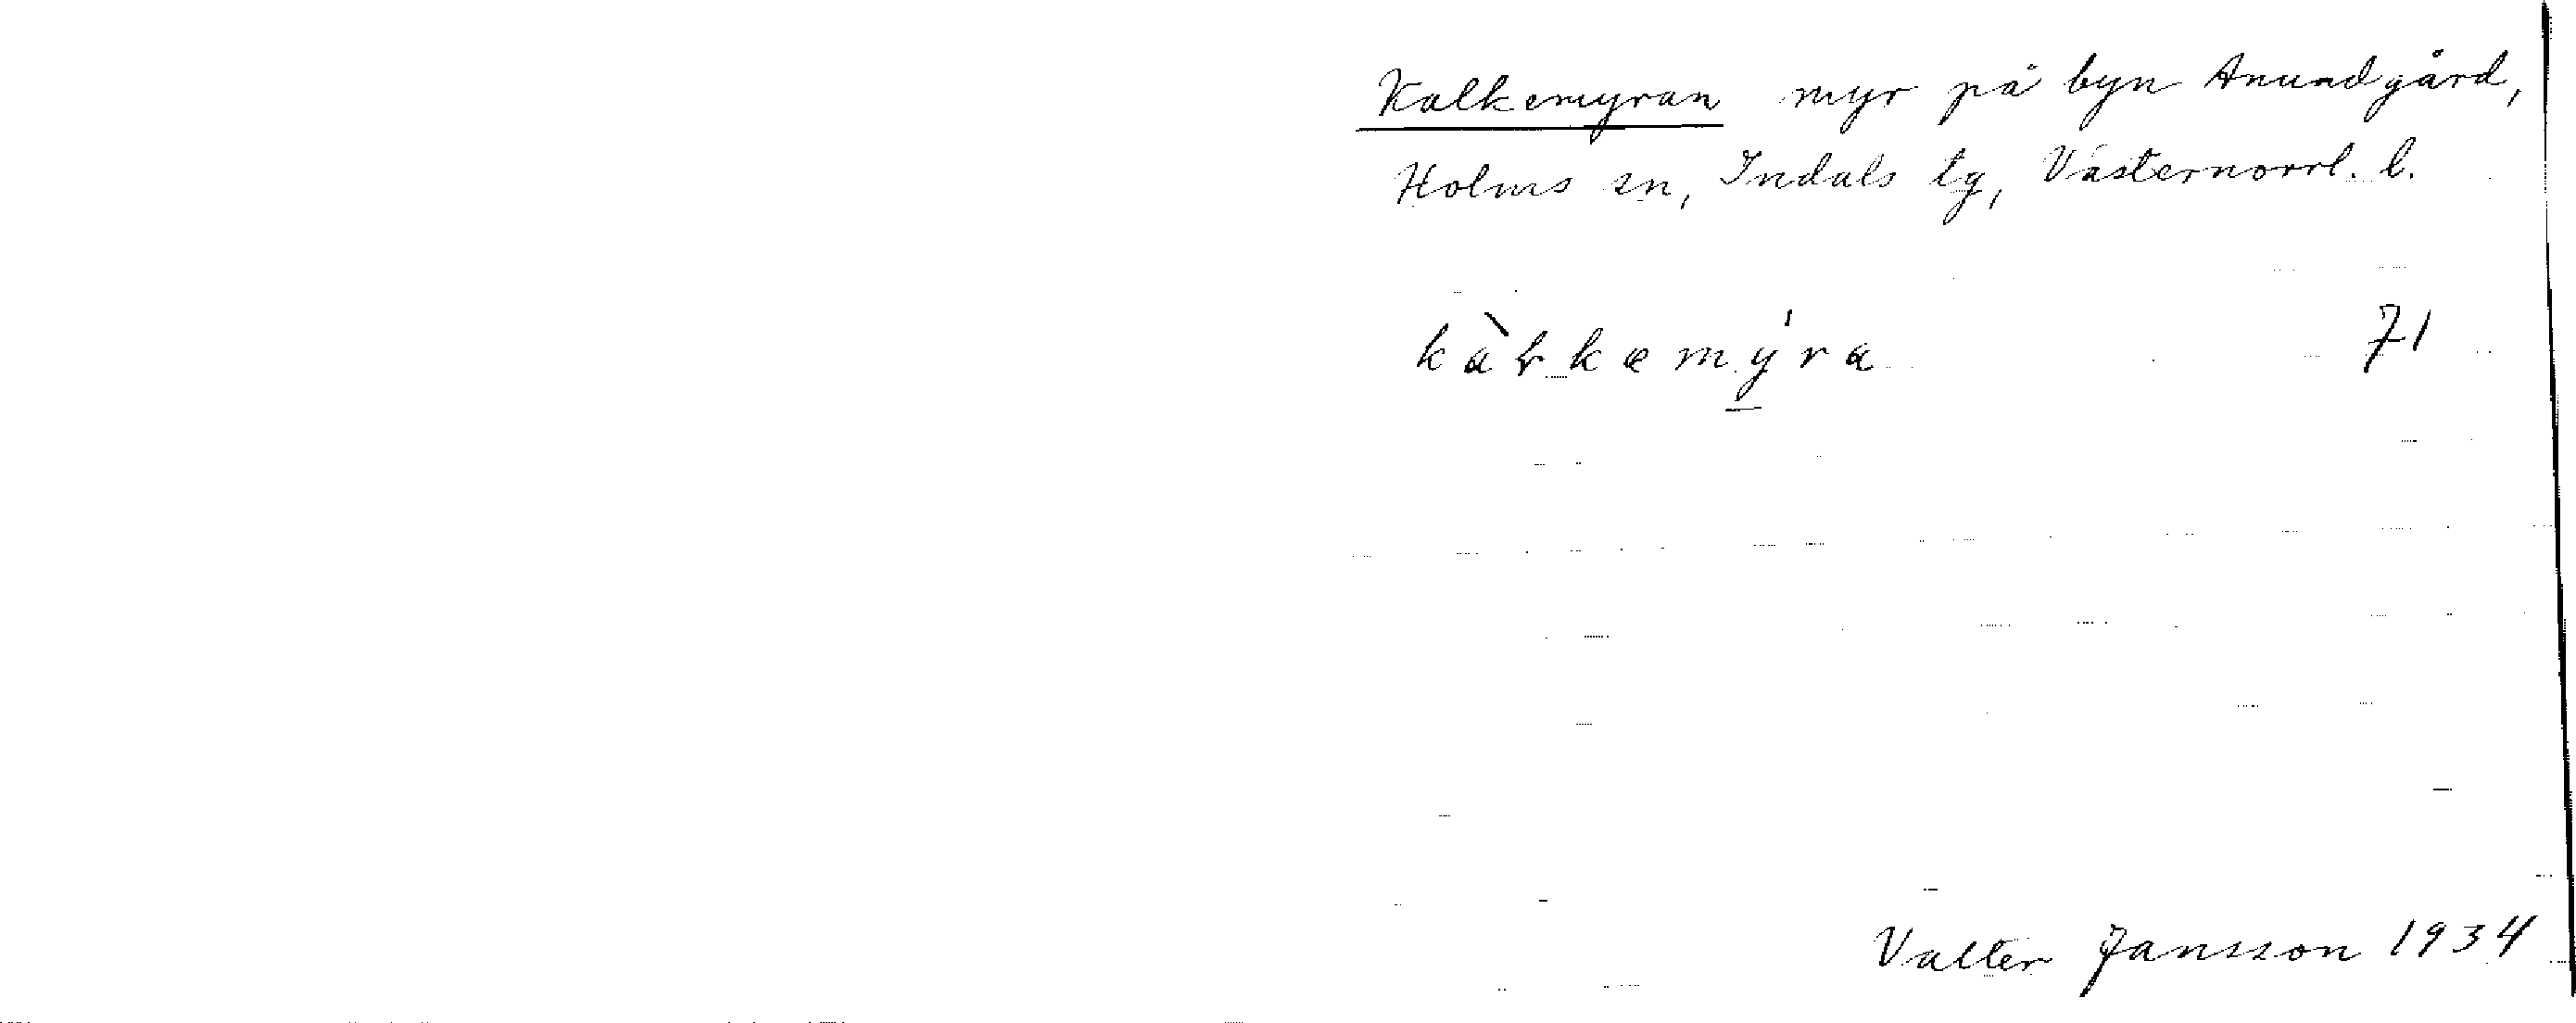 Kalkemyran myr på byn Anundgård,
Holms sn, Indals tg, Västernorrl. l.
kàɫkemý̱ra 71
Valter Jansson 1934